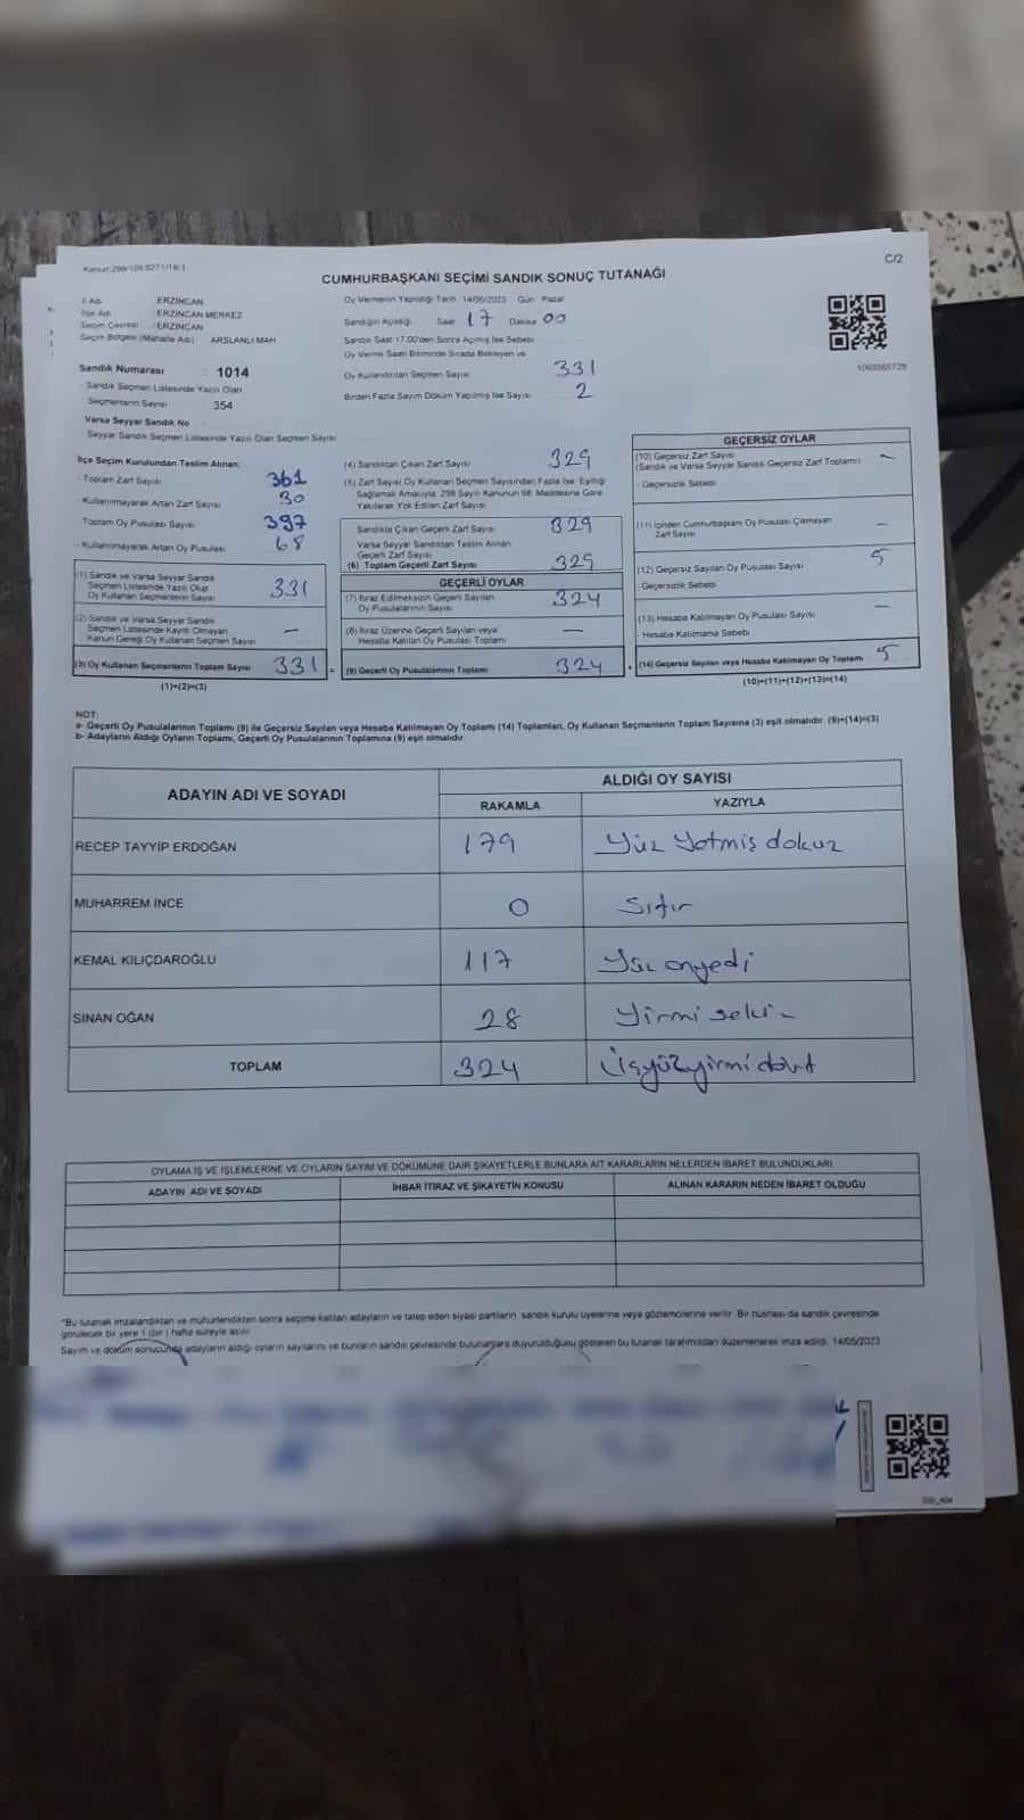 Kanun:299/105.6271/19/1
C/2
CUMHURBAŞKANI SEÇİMİ SANDIK SONUÇ TUTANAĞI
İl Adı ERZİNCAN
İlçe Adı ERZİNCAN MERKEZ
Seçim Çevresi ERZİNCAN
Seçim Bölgesi (Mahalle Adı) ARSLANLI MAH
Sandık Numarası : 1014
Sandık Seçmen Listesinde Yazılı Olan
Seçmenlerin Sayısı 354
Varsa Seyyar Sandık No
Seyyar Sandık Seçmen Listesinde Yazılı Olan Seçmen Sayısı
Oy Vermenin Yapıldığı Tarih 14/05/2023 Gün Pazar
Sandığın Açıldığı Saat 17 Dakika 00
Sandık Saat 17.00'den Sonra Açılmış İse Sebebi
Oy Verme Saati Bitiminde Sırada Bekleyen ve
Oy Kullandırılan Seçmen Sayısı 331
Birden Fazla Sayım Döküm Yapılmış İse Sayısı 2
İlçe Seçim Kurulundan Teslim Alınan;
- Toplam Zarf Sayısı 361
- Kullanılmayarak Artan Zarf Sayısı 30
Toplam Oy Pusulası Sayısı 397
- Kullanılmayarak Artan Oy Pusulası 68
(1) Sandık ve Varsa Seyyar Sandık
Seçmen Listesinde Yazılı Olup
Oy Kullanan Seçmenlerin Sayısı 331
(2) Sandık ve Varsa Seyyar Sandık
Seçmen Listesinde Kayıtlı Olmayan
Kanun Gereği Oy Kullanan Seçmen Sayısı —
(3) Oy Kullanan Seçmenlerin Toplam Sayısı 331 =
(1)+(2)=(3)
(4) Sandıktan Çıkan Zarf Sayısı 329
(5) Zarf Sayısı Oy Kullanan Seçmen Sayısından Fazla İse, Eşitliği
Sağlamak Amacıyla, 298 Sayılı Kanunun 98. Maddesine Göre
Yakılarak Yok Edilen Zarf Sayısı
Sandıkta Çıkan Geçerli Zarf Sayısı 329
Varsa Seyyar Sandıktan Teslim Alınan
Geçerli Zarf Sayısı
(6) Toplam Geçerli Zarf Sayısı 329
GEÇERLİ OYLAR
(7) İtiraz Edilmeksizin Geçerli Sayılan
Oy Pusulalarının Sayısı 324
(8) İtiraz Üzerine Geçerli Sayılan veya
Hesaba Katılan Oy Pusulası Toplamı —
(9) Geçerli Oy Pusulalarının Toplamı 324 +
GEÇERSİZ OYLAR
(10) Geçersiz Zarf Sayısı —
(Sandık ve Varsa Seyyar Sandık Geçersiz Zarf Toplamı)
- Geçersizlik Sebebi
(11) İçinden Cumhurbaşkanı Oy Pusulası Çıkmayan
Zarf Sayısı —
(12) Geçersiz Sayılan Oy Pusulası Sayısı 5
- Geçersizlik Sebebi
(13) Hesaba Katılmayan Oy Pusulası Sayısı —
- Hesaba Katılmama Sebebi
(14) Geçersiz Sayılan veya Hesaba Katılmayan Oy Toplamı 5
(10)+(11)+(12)+(13)=(14)
NOT:
a- Geçerli Oy Pusulalarının Toplamı (9) ile Geçersiz Sayılan veya Hesaba Katılmayan Oy Toplamı (14) Toplamları, Oy Kullanan Seçmenlerin Toplam Sayısına (3) eşit olmalıdır. (9)+(14)=(3)
b- Adayların Aldığı Oyların Toplamı, Geçerli Oy Pusulalarının Toplamına (9) eşit olmalıdır.
ADAYIN ADI VE SOYADI ALDIĞI OY SAYISI
RAKAMLA YAZIYLA
RECEP TAYYİP ERDOĞAN 179 Yüz Yetmiş dokuz
MUHARREM İNCE 0 Sıfır
KEMAL KILIÇDAROĞLU 117 Yüz onyedi
SİNAN OĞAN 28 Yirmi sekiz
TOPLAM 324 Üçyüzyirmidört
OYLAMA İŞ VE İŞLEMLERİNE VE OYLARIN SAYIM VE DÖKÜMÜNE DAİR ŞİKAYETLERLE BUNLARA AİT KARARLARIN NELERDEN İBARET BULUNDUKLARI
ADAYIN ADI VE SOYADI İHBAR İTİRAZ VE ŞİKAYETİN KONUSU ALINAN KARARIN NEDEN İBARET OLDUĞU
*Bu tutanak imzalandıktan ve mühürlendikten sonra seçime katılan adayların ve talep eden siyasi partilerin, sandık kurulu üyelerine veya gözlemcilerine verilir. Bir nüshası da sandık çevresinde
görülecek bir yere 1 (bir) hafta süreyle asılır.
Sayım ve döküm sonucunda adayların aldığı oyların sayılarını ve bunların sandık çevresinde bulunanlara duyurulduğunu gösteren bu tutanak tarafımızdan düzenlenerek imza edildi. 14/05/2023